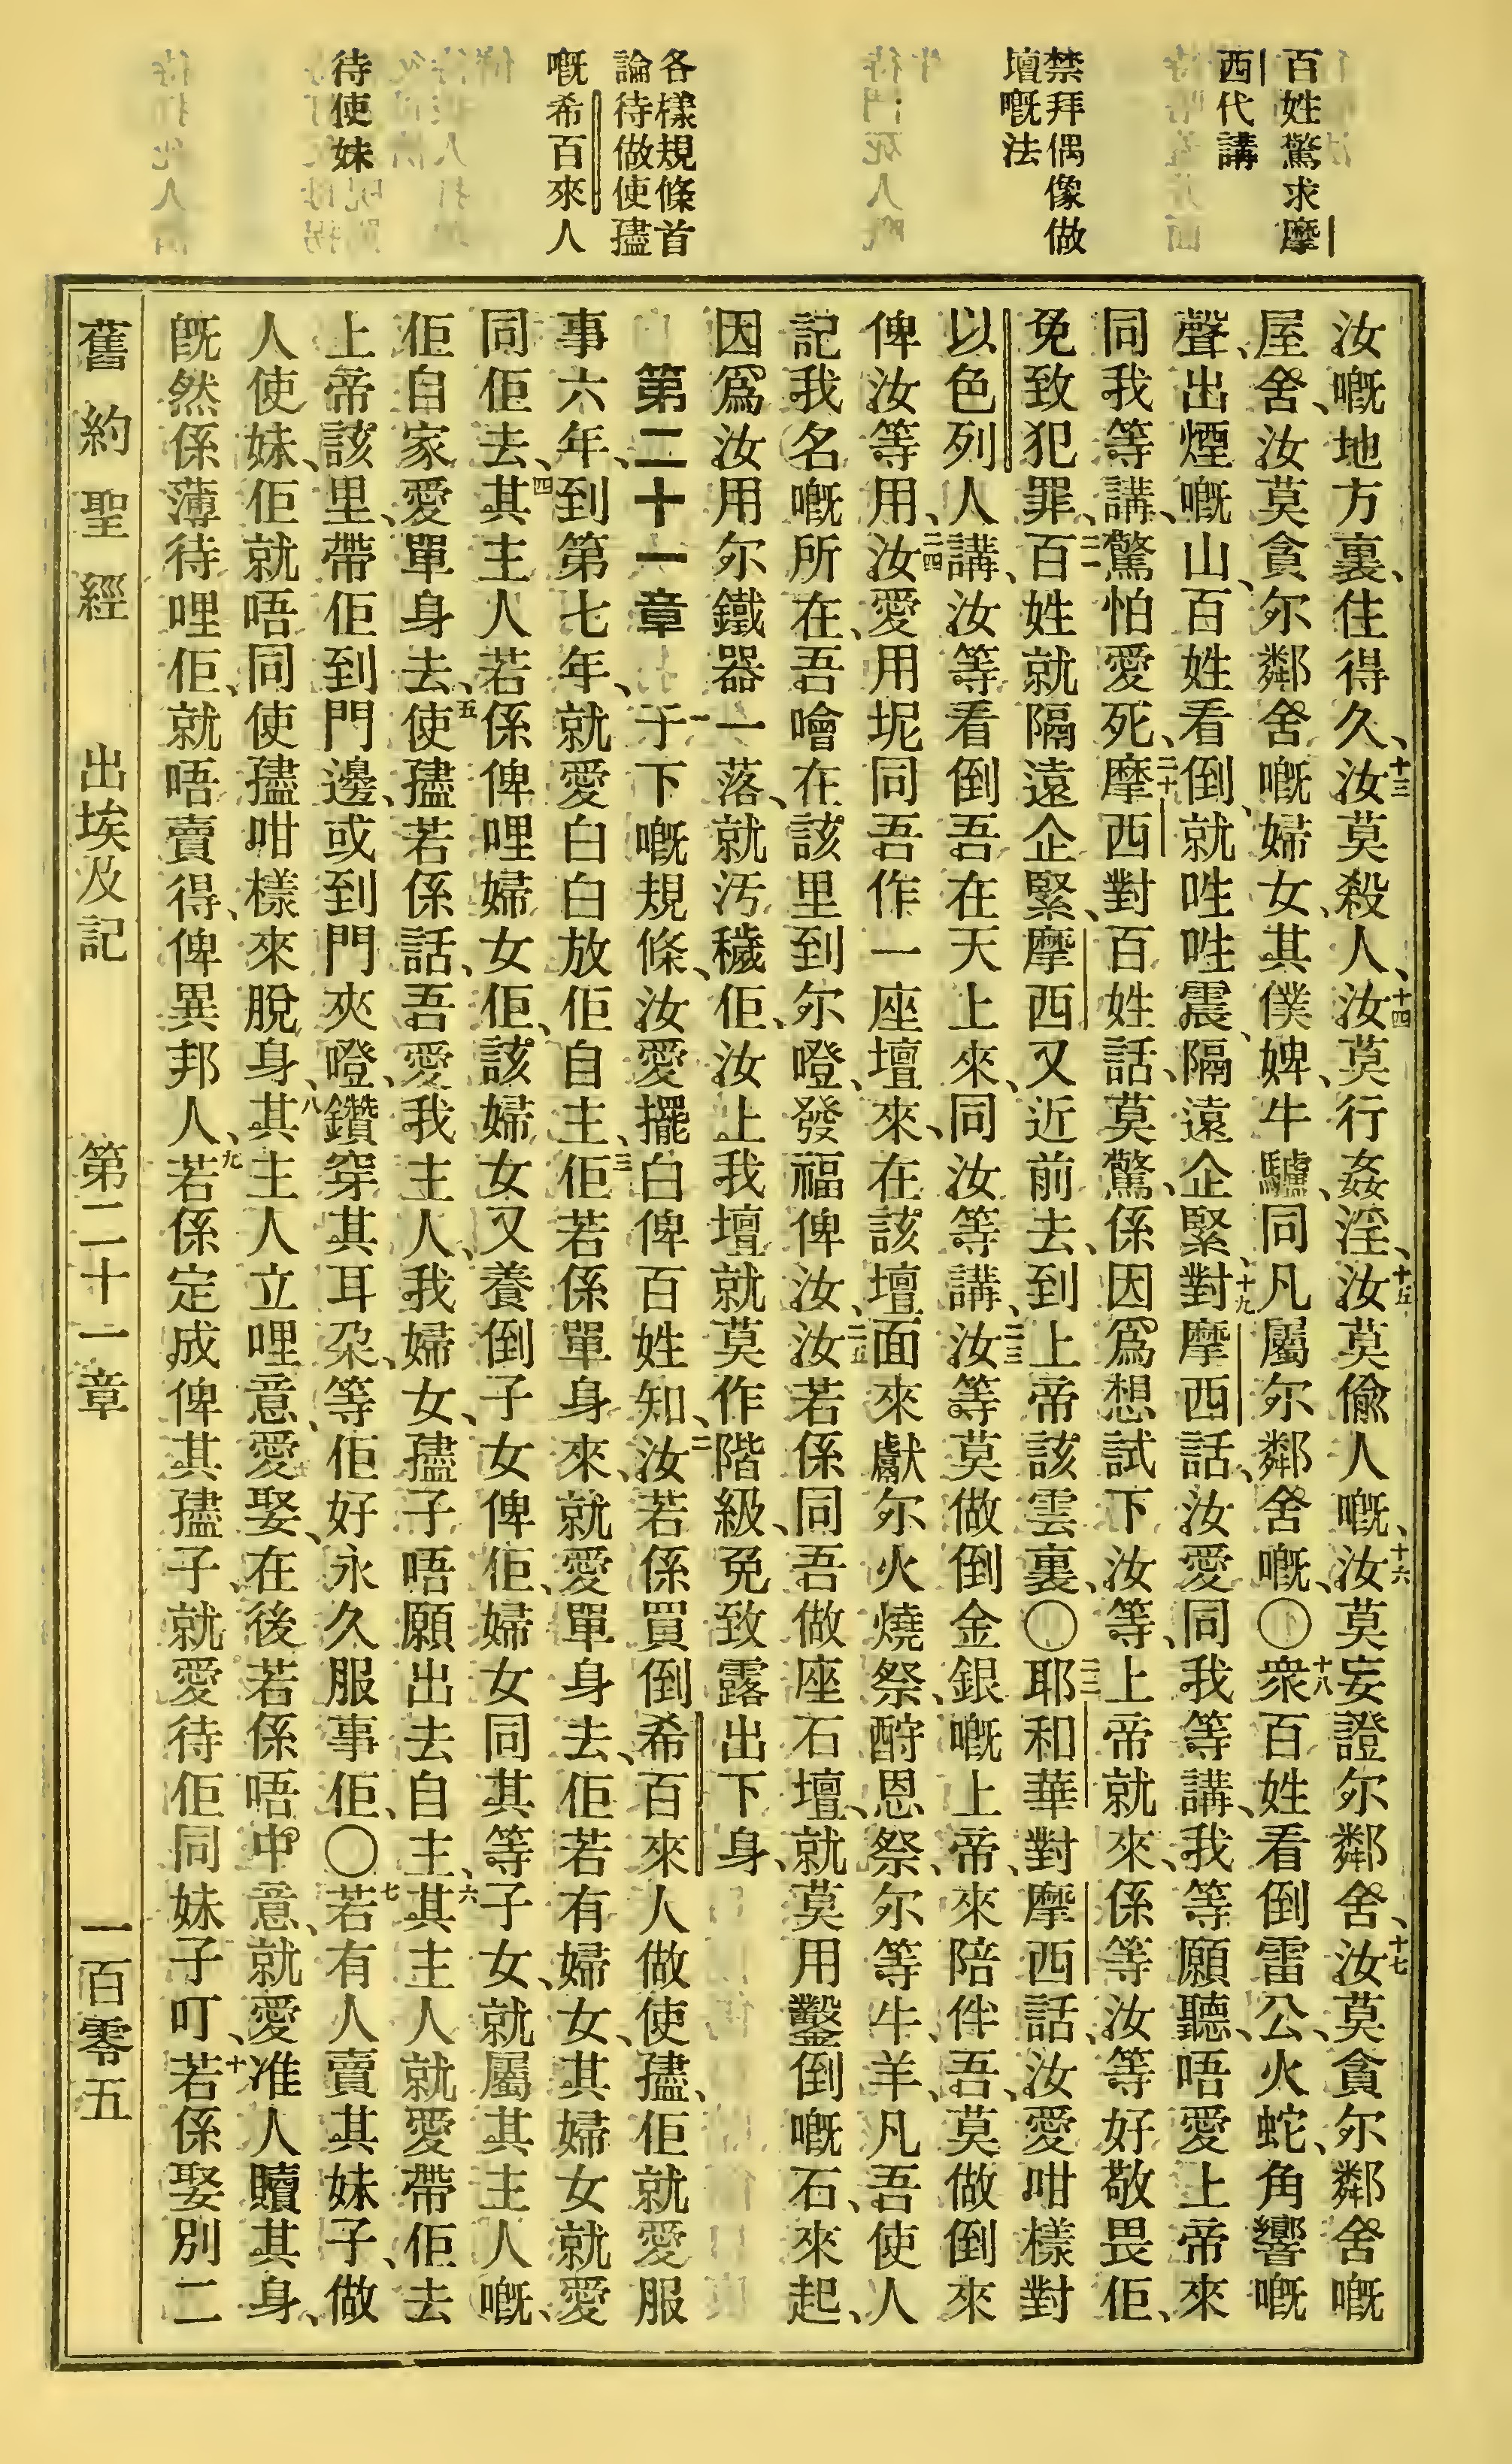 百姓驚求摩
西代講
禁拜偶像做
壇嘅法
各樣規條首
論待做使孻
嘅希百來人
待使妹
汝嘅地方裏、住得久、十三汝莫殺人、十四汝莫行姦淫、十五汝莫偷人嘅、十六汝莫妄證尔鄰舍、十七汝莫貪尔鄰舍嘅
屋舍、汝莫貪尔鄰舍嘅婦女、其僕婢、牛驢、同凡屬尔鄰舍嘅、〇十八衆百姓看倒雷公、火蛇、角響嘅
聲、出煙嘅山、百姓看倒、就呠呠震、隔遠企緊、十九對摩西話、汝愛同我等講、我等願聽、唔愛上帝來
同我等講、驚怕愛死、二十摩西對百姓話、莫驚、係因爲想試下汝等、上帝就來、係等汝等好敬畏佢、
免致犯罪、二一百姓就隔遠企緊、摩西又近前去、到上帝該雲裏、〇二二耶和華對摩西話、汝愛咁樣對
以色列人講、汝等看倒吾在天上來、同汝等講、二三汝等莫做倒金銀嘅上帝、來陪伴吾、莫做倒來
俾汝等用、二四汝愛用坭同吾作一座壇來、在該壇面來獻尔火燒祭、酧恩祭、尔等牛、羊、凡吾使人
記我名嘅所在、吾噲在該里到尔嶝、發福俾汝、二五汝若係同吾做座石壇、就莫用鑿倒嘅石、來起、
因爲汝用尔鐵器一落、就汚穢佢、汝上我壇就莫作階級、免致露出下身、
第二十一章 一于下嘅規條、汝愛擺白俾百姓知、二汝若係買倒希百來人做使孻、佢就愛服
事六年、到第七年、就愛白白放佢自主、三佢若係單身來、就愛單身去、佢若有婦女、其婦女就愛
同佢去、四其主人若係俾哩婦女佢、該婦女又養倒子女俾佢、婦女同其等子女、就屬其主人嘅、
佢自家愛單身去、五使孻若係話、吾愛我主人、我婦女、孻子唔願出去自主、六其主人就愛帶佢去
上帝該里、帶佢到門邊、或到門夾嶝、鑽穿其耳朶、等佢好永久服事佢、〇七若有人賣其妹子、做
人使妹、佢就唔同使孻咁樣來脫身、八其主人立哩意、愛娶、在後若係唔中意、就愛准人贖其身、
旣然係薄待哩佢、就唔賣得、俾異邦人、九若係定成俾其孻子、就愛待佢同妹子叮、十若係娶別二
舊約聖經 出埃及記 第二十一章 一百零五